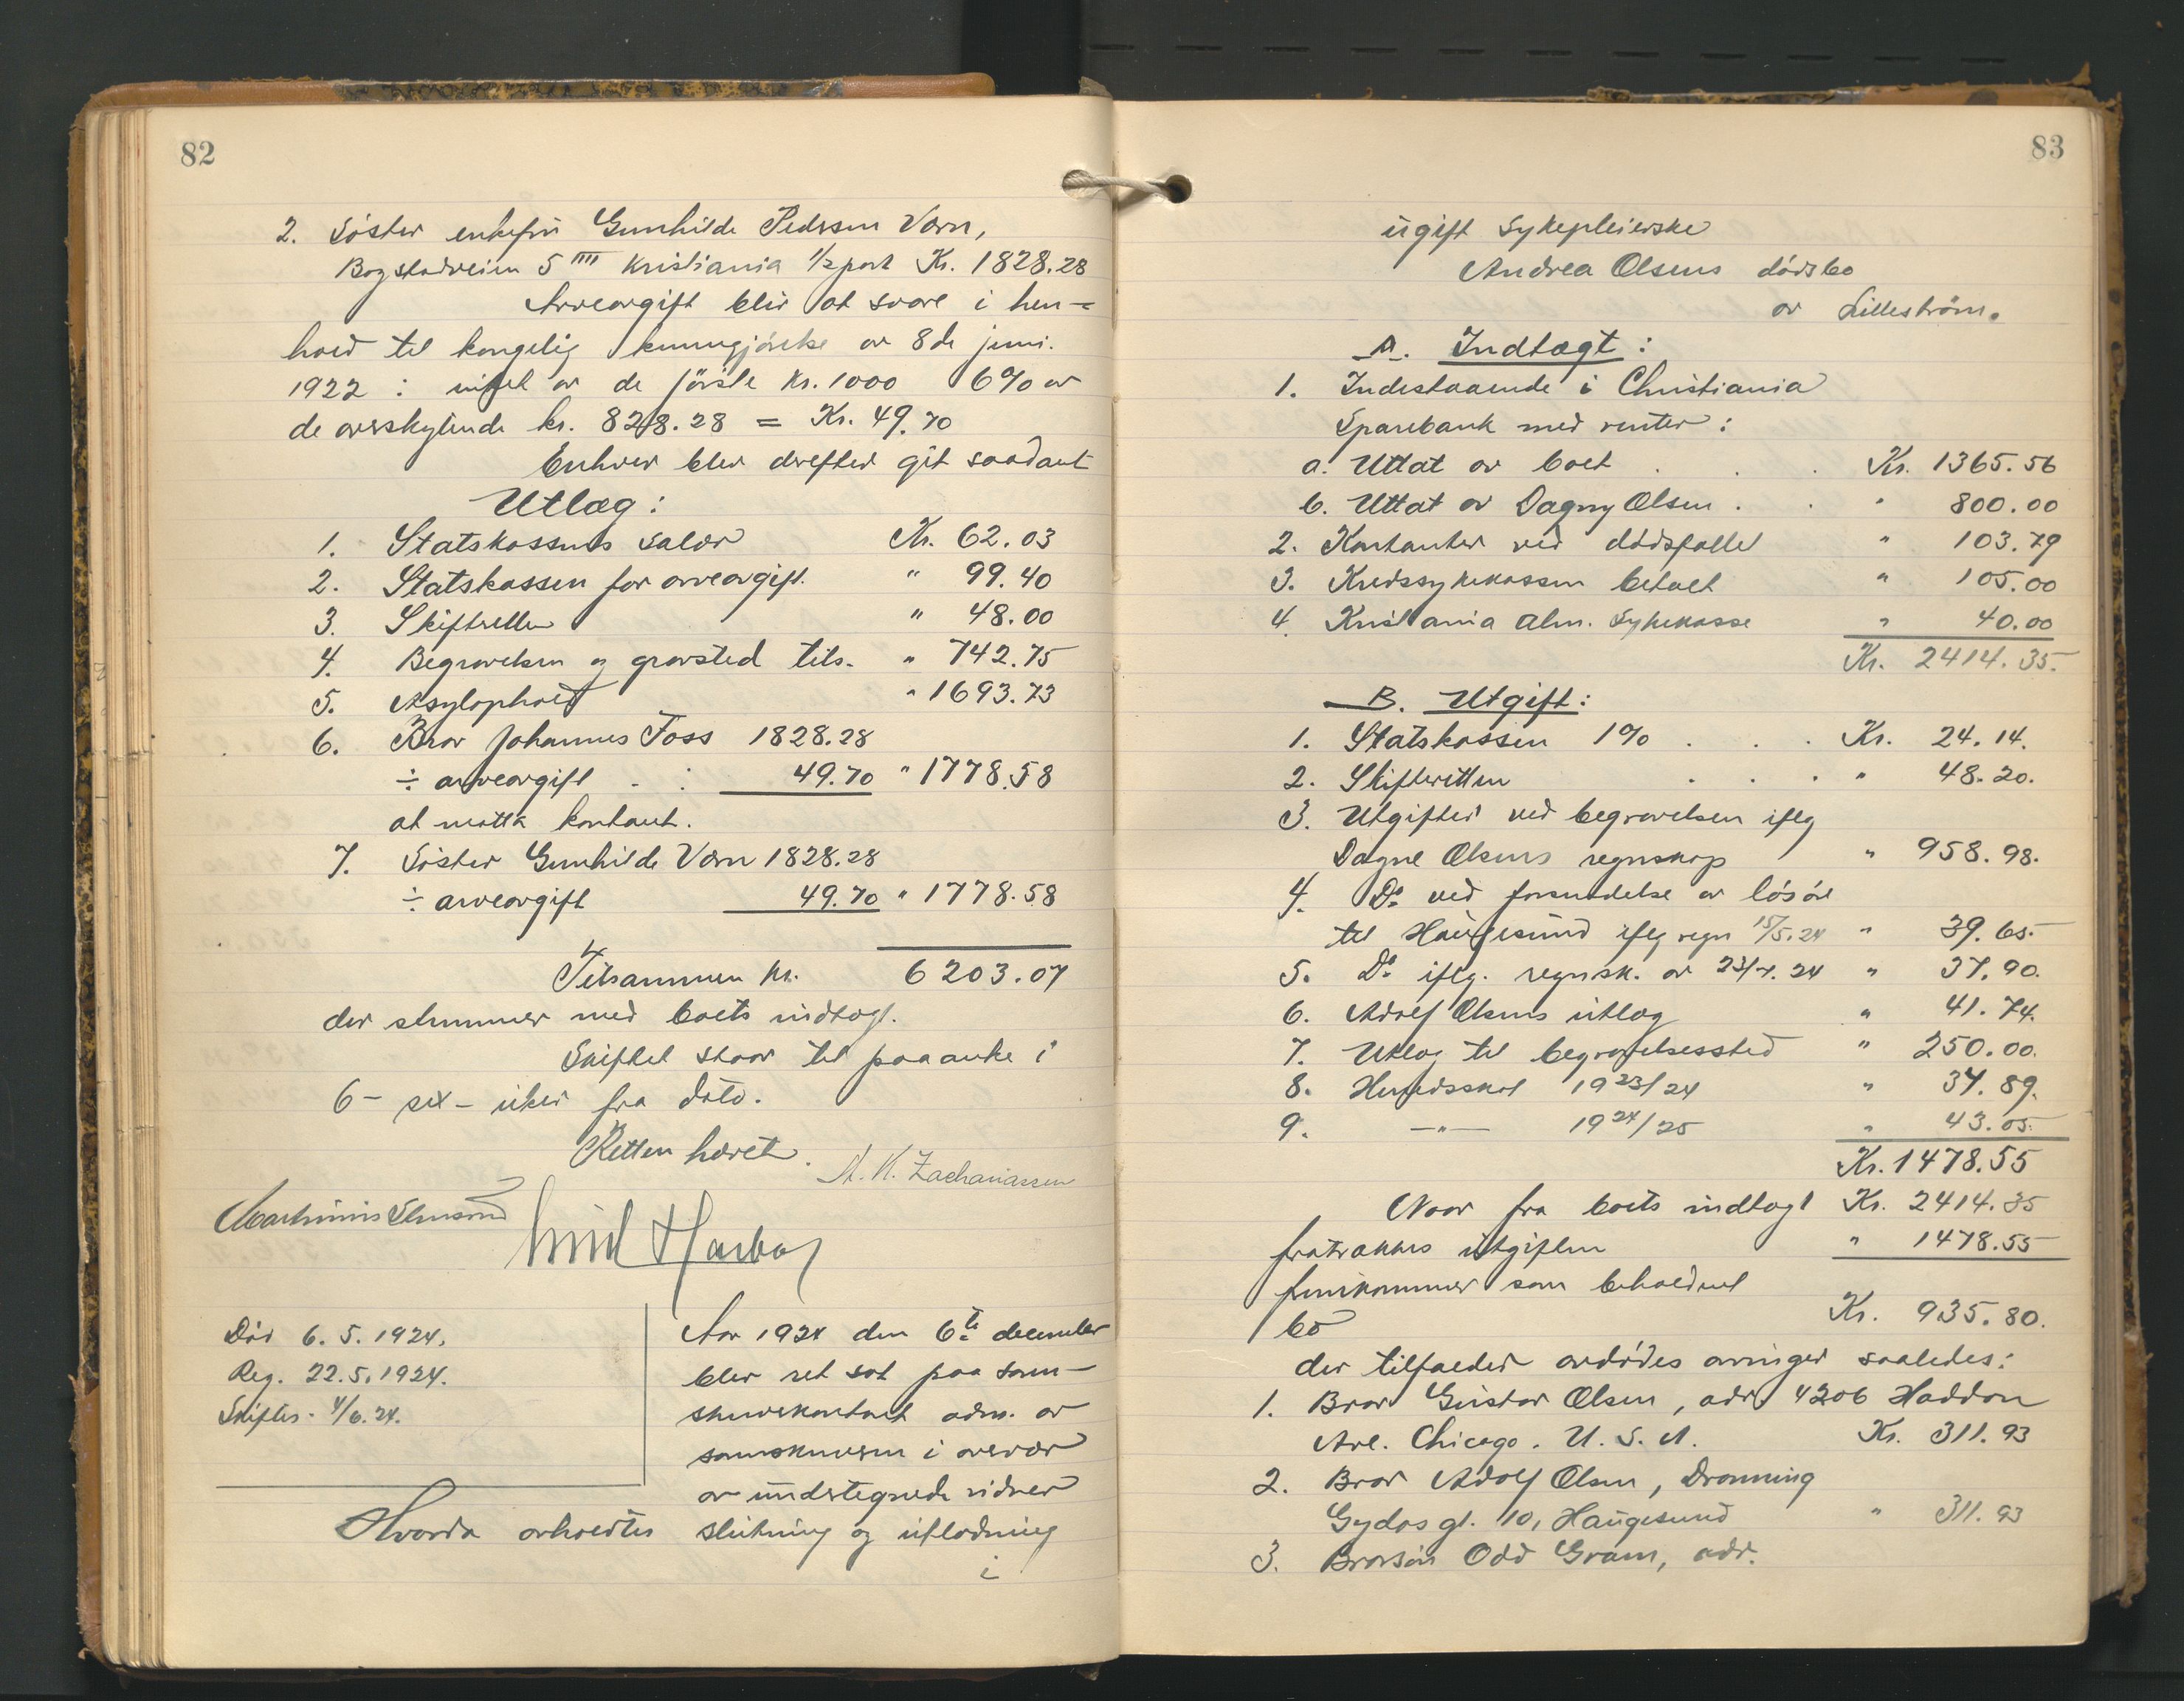 82
2. Söster enkefru Gunhilde Pedersen Værn,
Bogstadveien 5 IIII Kristiania 1/2 part Kr. 1828.28
Arveavgift blir at svare i hen-
hold til kongelig kunngjörelse av 8de juni.
1922 : intet av de förste kr. 1000 6% av
de overskytende kr. 828.28 = Kr. 49.70
Enhver blev derefter git saadant
Utlæg:
1. Statskassens salær Kr. 62.03
2. Statskassen for arveavgift. " 99.40
3. Skifteretten " 48.00
4. Begravelsen og gravsted tils. " 742.75
5. Asylophold " 1693.73
6. Bror Johannes Foss 1828.28
÷ arveavgift . . 49.70 " 1778.58
at motta kontant.
7. Söster Gunhilde Værn 1828.28
÷ arveavgift 49.70 " 1778.58
Tilsammen kr. 6203.07
der stemmer med boets indtægt.
Skiftet staar til paaanke i
6 - sex - uker fra dato.
Retten hævet.
A. K. Zachariassen
Död 6. 5. 1924.
Reg. 22.5.1924.
Skiftes. 4/6.24.
Aar 1924 den 6te december
blev ret sat paa soren-
skriverkontoret adm. av
sorenskriveren i overvær
av undertegnede vidner
Hvorda avholdtes slutning og utlodning
i
83
ugift sykepleierske
Andrea Olsens dödsbo
av Lilleström.
A. Indtægt:
1. Indestaaende i Christiania
Sparebank med renter:
a. Uttat av boet . . . Kr. 1365.56
b. Uttat av Dagny Olsen . . " 800.00
2. Kontanter ved dödsfallet " 103.79
3. Kredssykekassen betalt " 105.00
4. Kristiania alm. Sykekasse " 40.00
Kr. 2414.35.
B. Utgift:
1. Statskassen 1% . . . Kr. 24.14.
2. Skifteretten . . . " 48.20.
3. Utgifter ved begravelsen iflg
Dagne Olsens regnskap " 958.98.
4. Do ved forsendelse av lösöre
til Haugesund iflg regn 15/5.24 " 39.65.
5. Do iflg. regnsk. av 23/7.24 " 37.90.
6. Adolf Olsens utlæg " 41.74.
7. Utlæg til begravelsessted " 250.00.
8. Herredsskat 1923/24 " 34.89.
9. —"— 1924/25 " 43.05.
Kr. 1478.55
Naar fra boets indtægt Kr. 2414.35
fratrækkes utgiften " 1478.55
fremkommer som beholdent
bo Kr. 935.80.
der tilfalder avdödes arvinger saaledes:
1. Bror Gustav Olsen, adr. 4206 Haddon
Ave. Chicago. U. S. A. Kr. 311.93
2. Bror Adolf Olsen, Dronning
Gydas gt. 10, Haugesund " 311.93
3. Brorsön Odd Gram, adr.